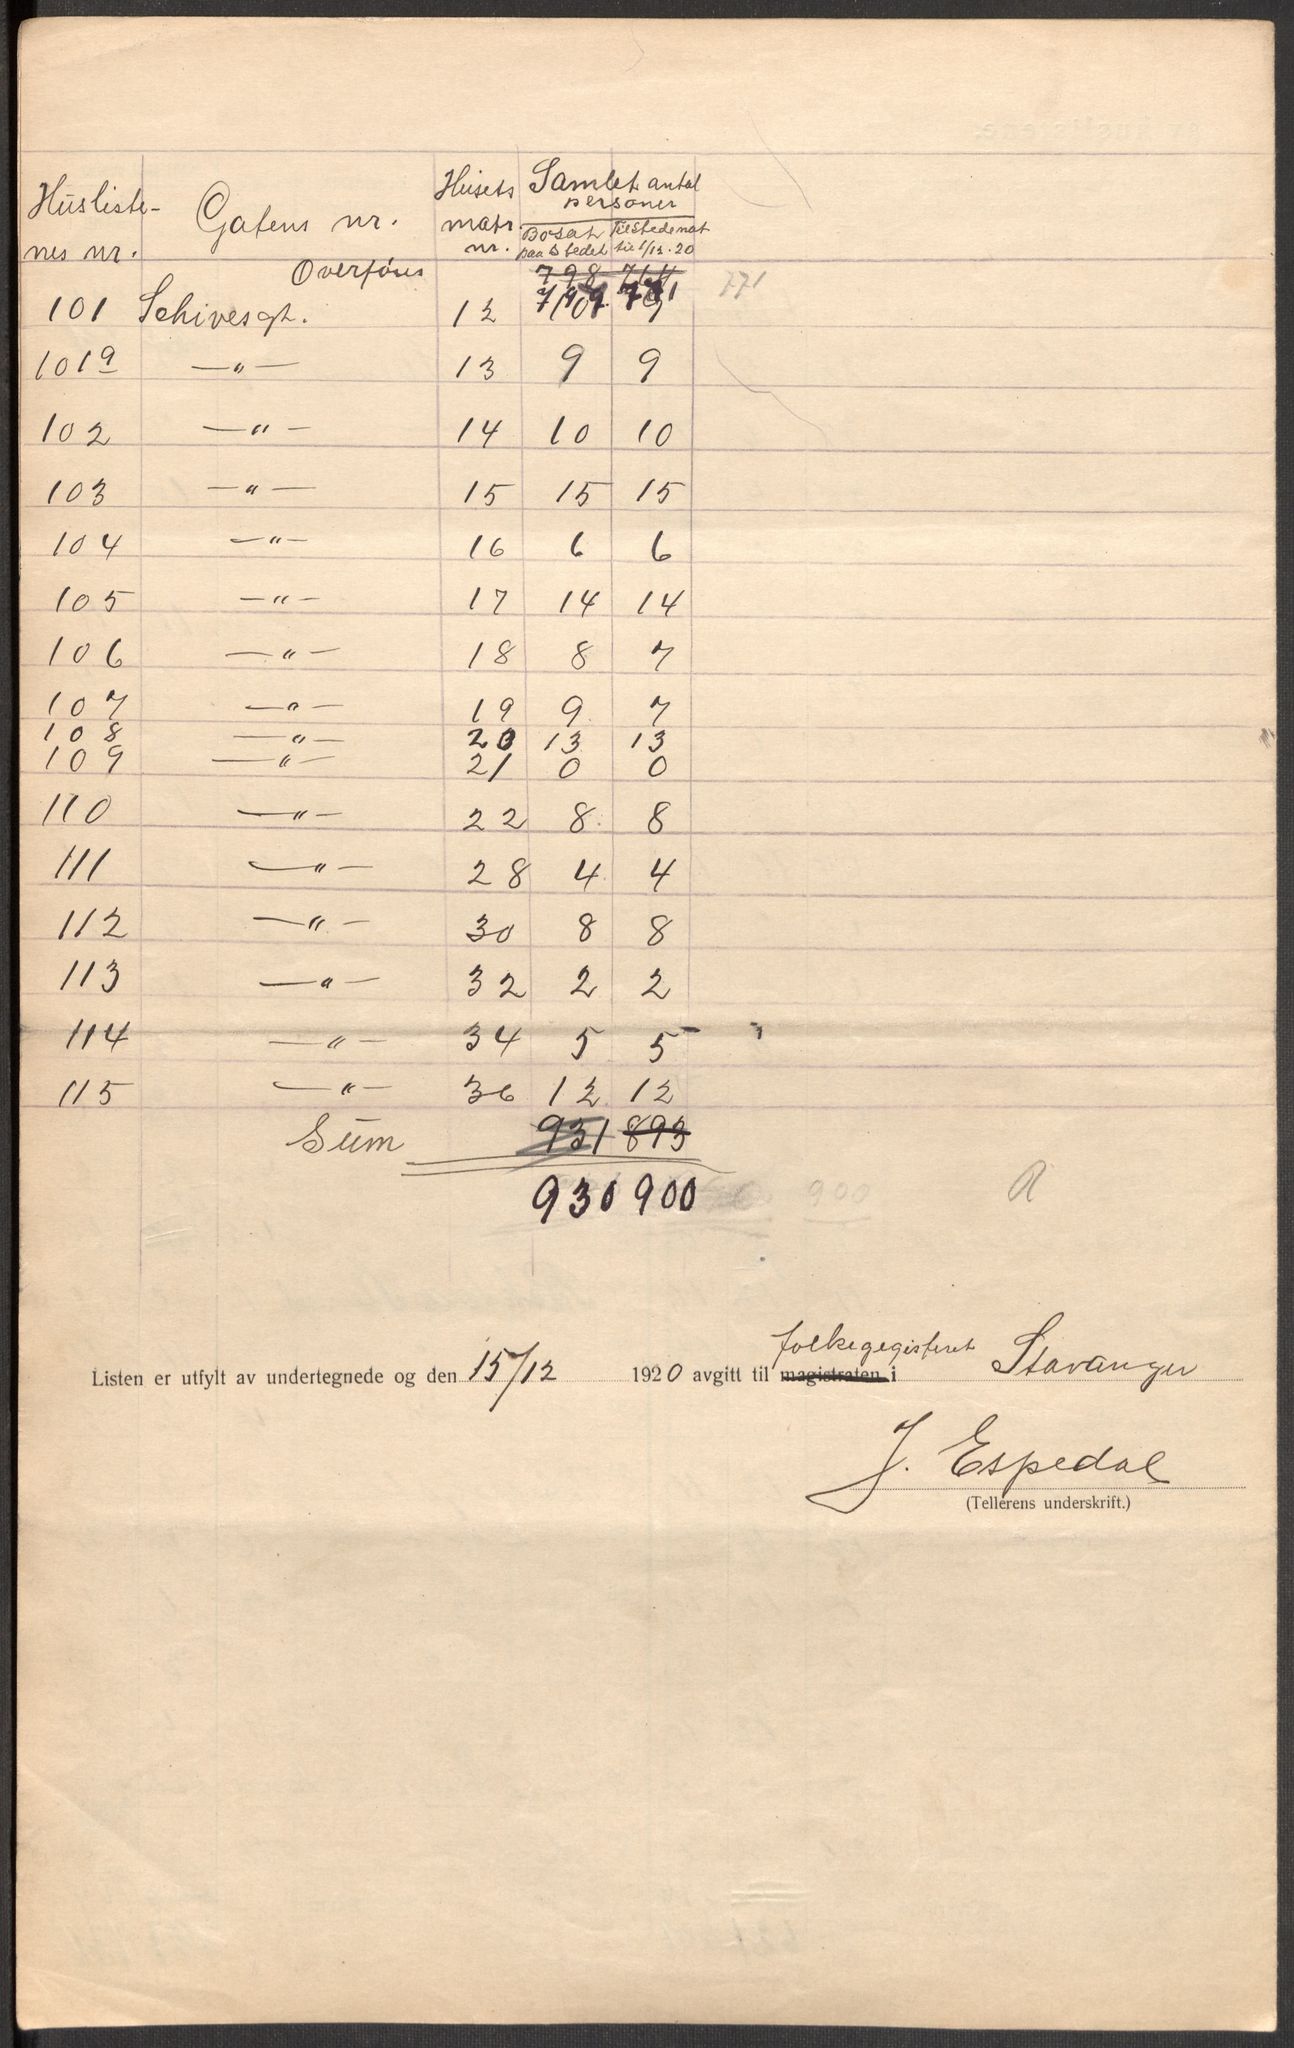 Husliste-
nes nr.
Gatens nr.
Husets
matr.
nr.
Samlet antal
personer
Bosat
paa stedet
Tilstede nat
til 1/12.20
Overføres 798 764
771
101 Schivesgt. 12 10 9
101a —"— 13 9 9
102 —"— 14 10 10
103 —"— 15 15 15
104 —"— 16 6 6
105 —"— 17 14 14
106 —"— 18 8 7
107 —"— 19 9 7
108 —"— 20 13 13
109 —"— 21 0 0
110 —"— 22 8 8
111 —"— 28 4 4
112 —"— 30 8 8
113 —"— 32 2 2
114 —"— 34 5 5
115 —"— 36 12 12
Sum 931 893
930 900 900
Listen er utfylt av undertegnede og den 15/12 1920 avgitt til magistraten i folkegegisteret Stavanger
J. Espedal
(Tellerens underskrift.)